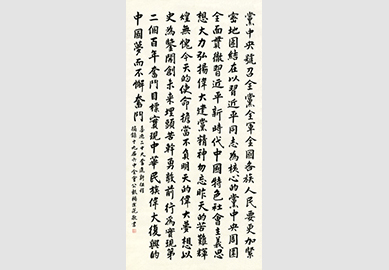 黨中央號召全黨全軍全國各族人民要更加緊
密地團結在以習近平同志為核心的黨中央周圍
全面貫徹習近平新時代中國特色社會主義思
想大力弘揚偉大建黨精神勿忘昨天的苦難輝
煌無愧今天的使命擔當不負明天的偉大夢想以
史為鑒開創未來埋頭苦幹勇毅前行為實現第
二個百年奮鬥目標實現中華民族偉大復興的
中國夢而不懈奮鬥
喜迎二十大奮進新征程
摘錄十九屆六中全會公報